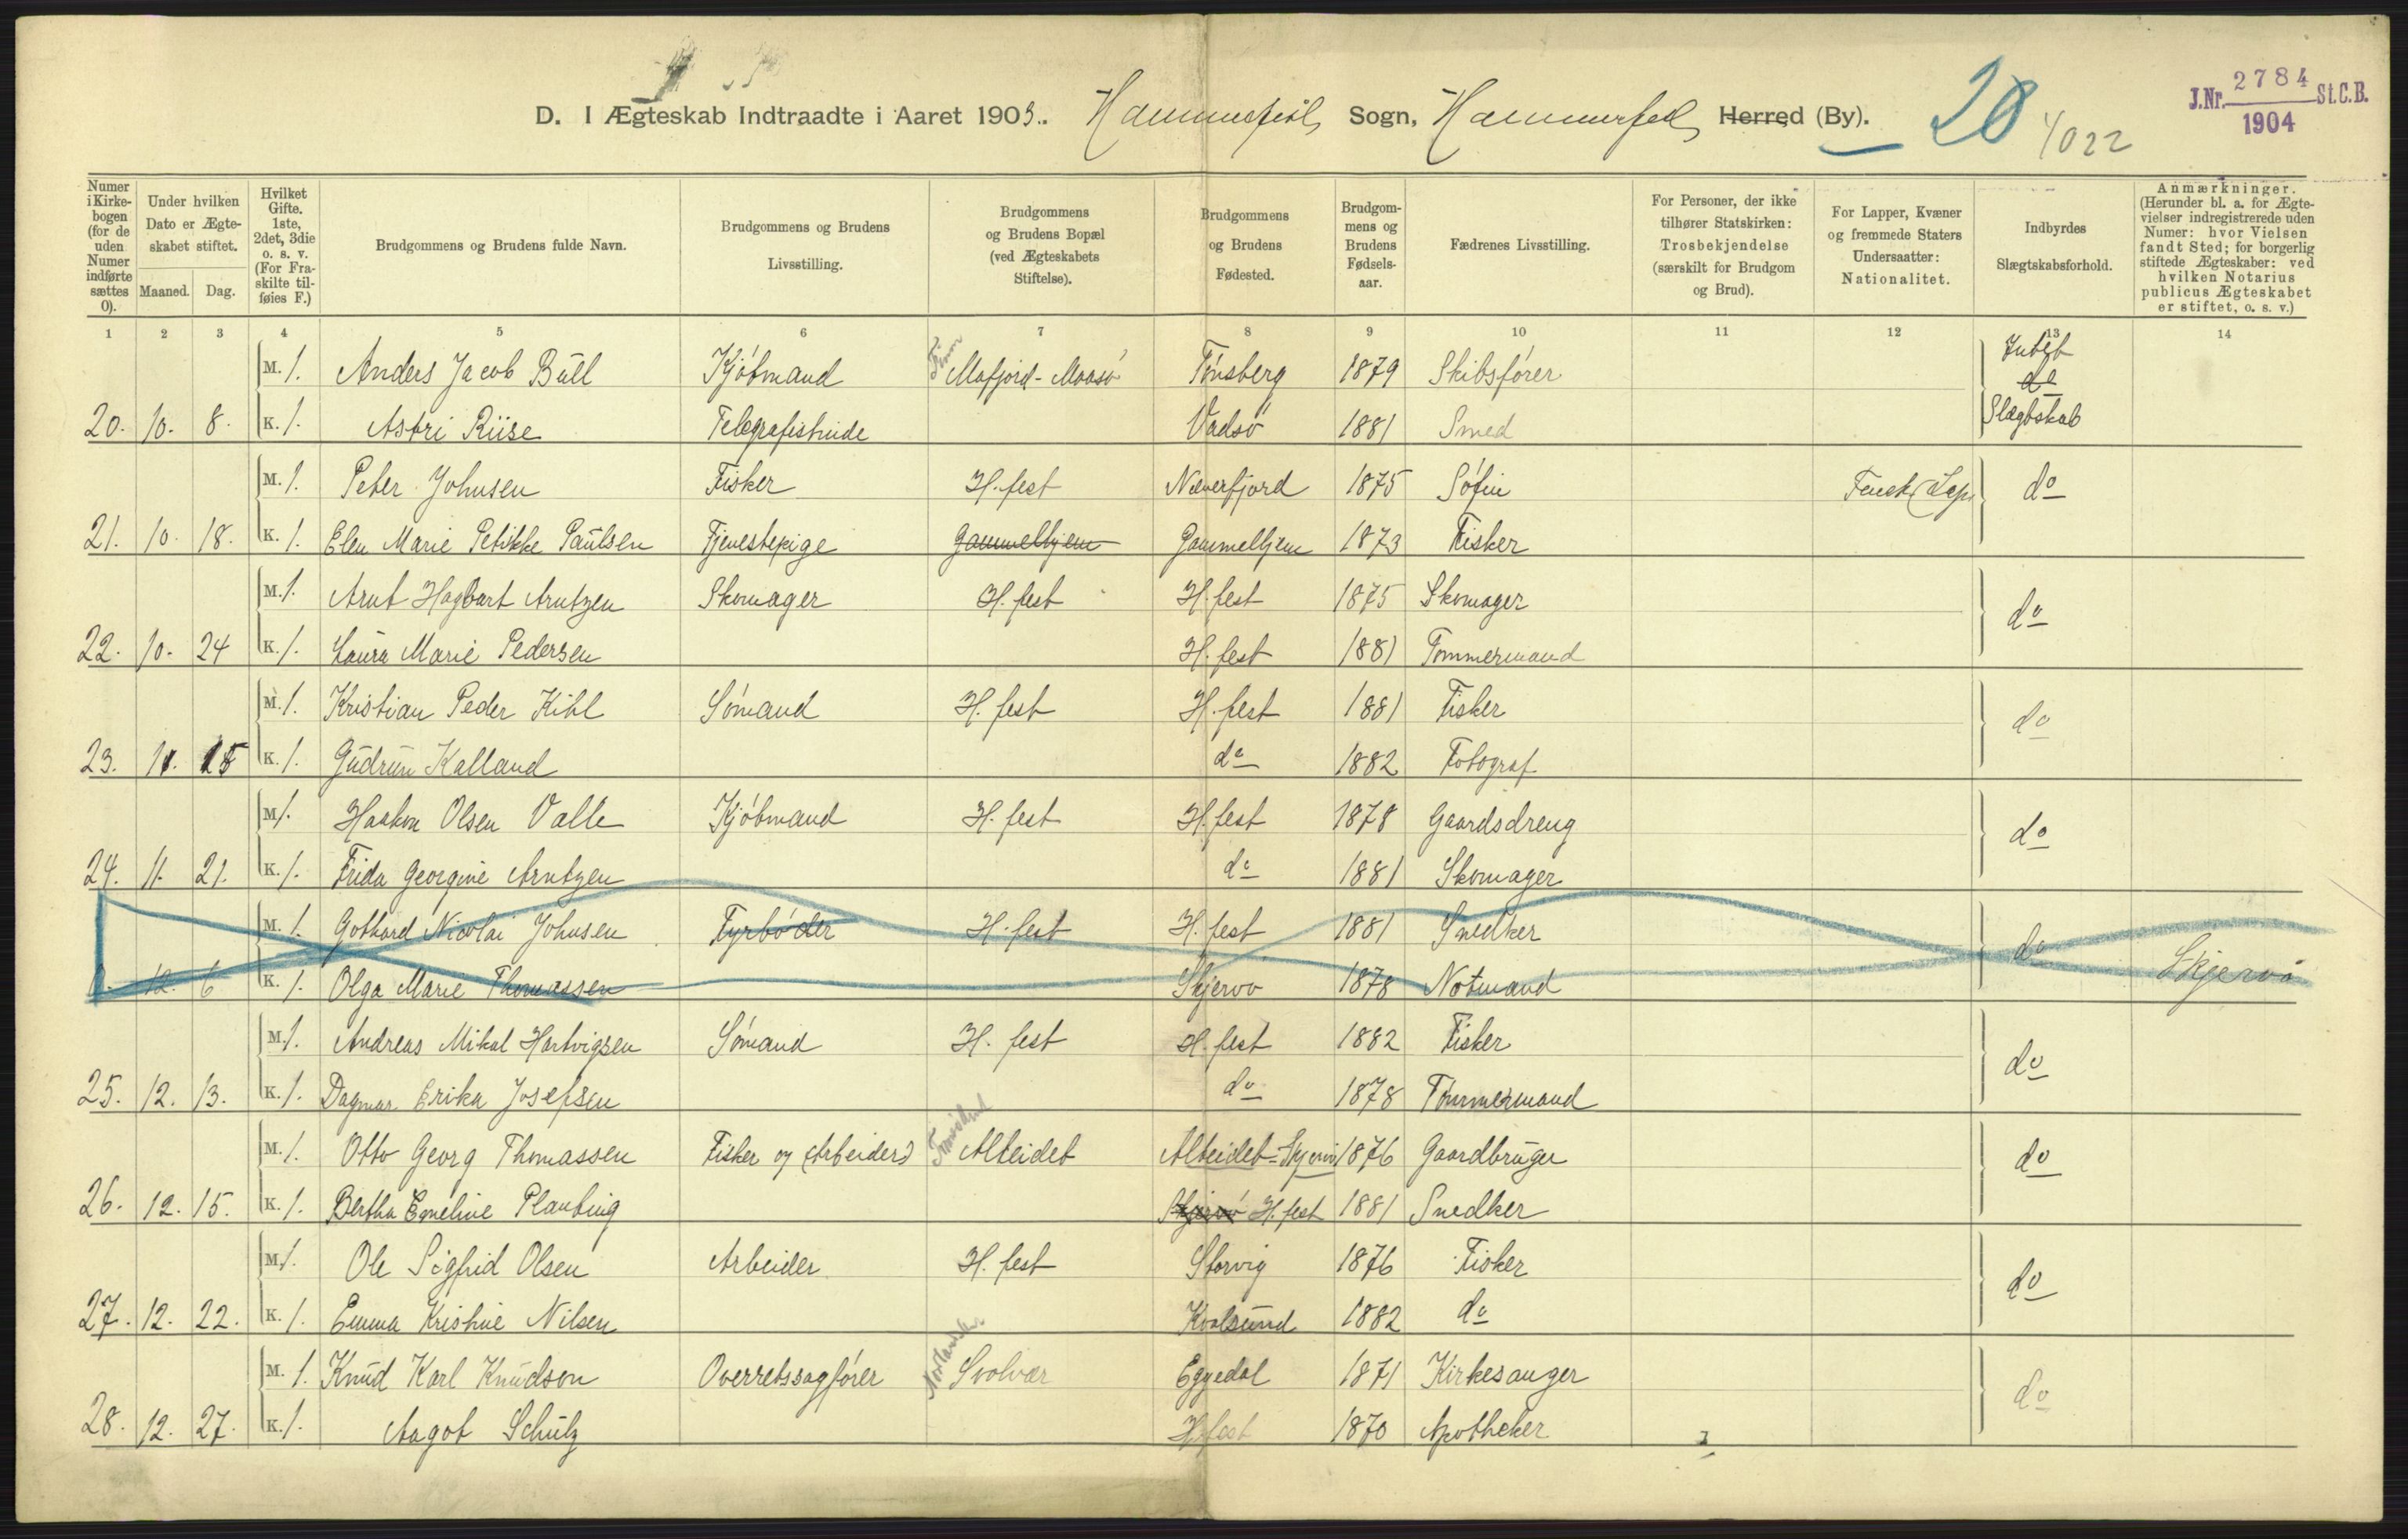 J.Nr. 2784 St.C.B.
1904
D. I Ægteskab Indtraadte i Aaret 1903. Hammerfest Sogn, Hammerfest Herred (By). 28 1022
Numer i Kirkebogen (for de uden Numer indførte sættes 0).
Under hvilken Dato er Ægteskabet stiftet. Maaned. Dag.
Hvilket Gifte. 1ste, 2det, 3die o. s. v. (For Fraskilte tilføies F.)
Brudgommens og Brudens fulde Navn.
Brudgommens og Brudens Livsstilling.
Brudgommens og Brudens Bopæl (ved Ægteskabets Stiftelse).
Brudgommens og Brudens Fødested.
Brudgommens og Brudens Fødselsaar.
Fædrenes Livsstilling.
For Personer, der ikke tilhører Statskirken: Trosbekjendelse (særskilt for Brudgom og Brud).
For Lapper, Kvæner og fremmede Staters Undersaatter: Nationalitet.
Indbyrdes Slægtskabsforhold.
Anmærkninger. (Herunder bl. a. for Ægtevielser indregistrerede uden Numer: hvor Vielsen fandt Sted; for borgerlig stiftede Ægteskaber: ved hvilken Notarius publicus Ægteskabet er stiftet, o. s. v.)
1 2 3 4 5 6 7 8 9 10 11 12 13 14
M. 1. Anders Jacob Bull Kjøbmand Finm Mafjord - Maasø Tønsberg 1879 Skibsfører Intet
do
20. 10. 8. K. 1. Astri Riise Telegrafistinde Vadsø 1881 Smed Slægtskab
M. 1. Peter Johnsen Fisker H.fest Næverfjord 1875 Søfin do
21. 10. 18. K. 1. Elen Marie Petikke Paulsen Tjenestepige Gammelhjem Gammelhjem 1873 Fisker
M. 1. Arnt Hagbart Arntzen Skomager H.fest H.fest 1875 Skomager do
22. 10. 24 K. 1. Laura Marie Pedersen H.fest 1881 Tømmermand
M. 1. Kristian Peder Kihl Sømand H.fest H.fest 1881 Fisker do
23. 11. 15 K. 1. Gudrun Kalland do 1882 Fotograf
M 1. Haakon Olsen Valle Kjøbmand H.fest H.fest 1878 Gaardsdreng do
24. 11. 21. K. 1. Frida Georgine Arntzen do 1881 Skomager
M. 1. Gothard Nicolai Johnsen Fyrbøder H.fest H.fest 1881 Snedker do
12. 6 K. 1. Olga Marie Thomassen Skjervø 1878 Notmand Skjervø
M 1. Andreas Mikal Hartvigsen Sømand H. fest H.fest 1882 Fisker do
25. 12. 13. K. 1. Dagmar Erika Josefsen do 1878 Tømmermand
M. 1. Otto Georg Thomassen Fisker og (Arbeider) Tromsø Alteidet Alteidet = Skjervø 1876 Gaardbruger do
26. 12. 15. K. 1. Bertha Emeline Planting Skjervø H.fest 1881 Snedker
M 1. Ole Sigfrid Olsen Arbeider H.fest Storvig 1876 Fisker do
27. 12. 22. K. 1. Emma Kristine Nilsen Kvalsund 1882 do
M. 1. Knud Karl Knudson Overretssagfører Nordland Svolvær Eggedal 1871 Kirkesanger do
28. 12. 27. K. 1. Aagot Schulz H.fest 1870 Apotheker